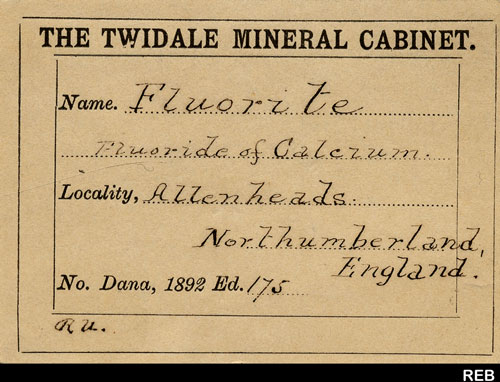 THE TWIDALE MINERAL CABINET.
Name. Fluorite
Fluoride of Calcium.
Locality, Allenheads.
Northumberland,
England.
No. Dana, 1892 Ed. 175
R U.
REB